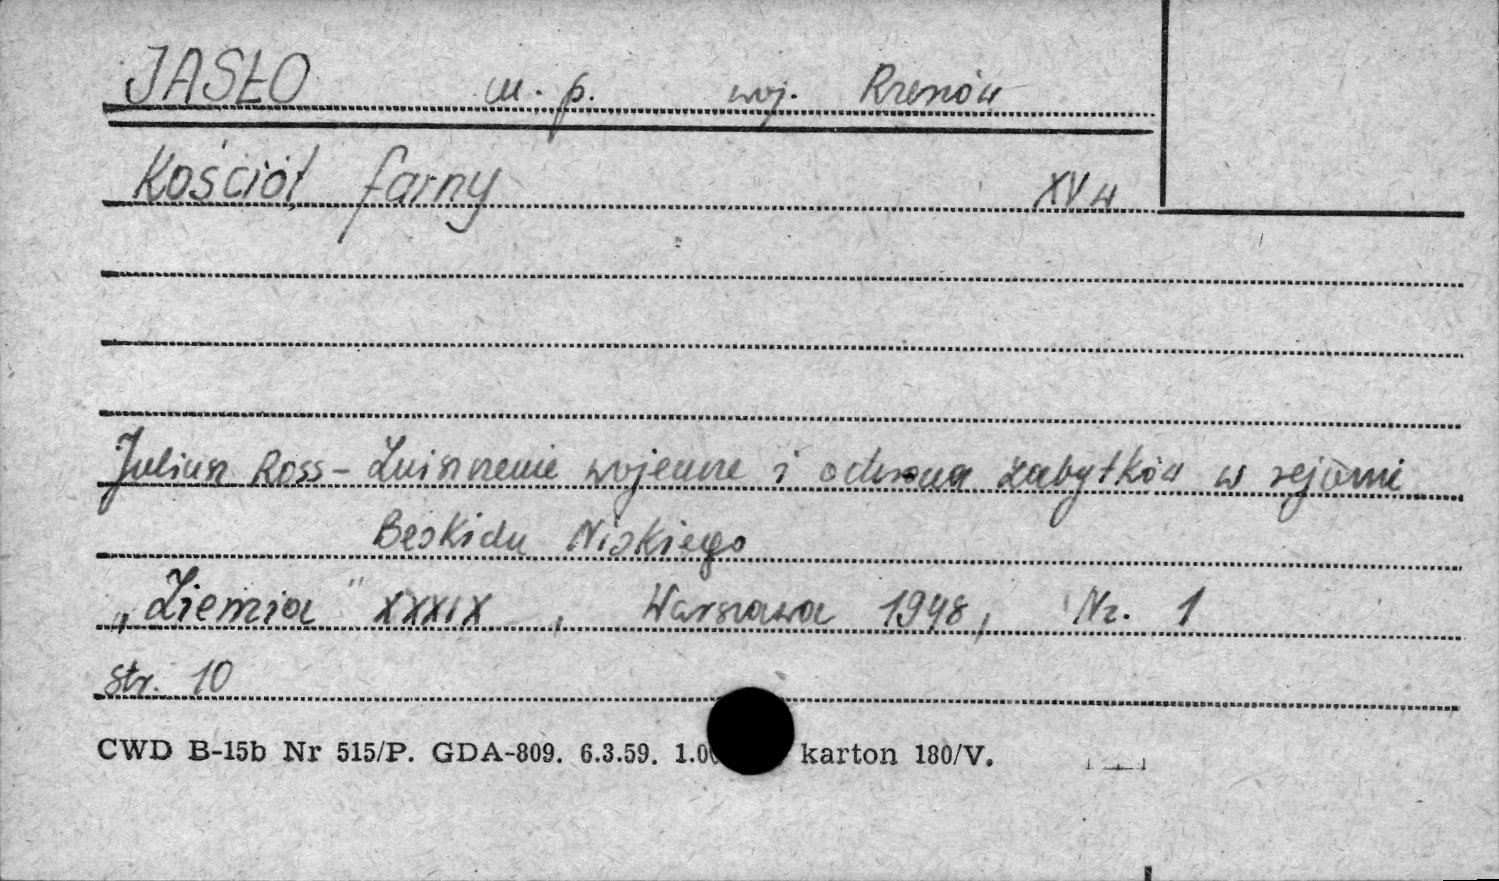 JASŁO m. p. woj. Rzeszów
Kościół farny XV w
Juliusz Ross – Zniszczenie wojenne i ochrona zabytków w rejonie
Beskidu Niskiego
„Ziemia" XXXIX, Warszawa 1948, Nr. 1
str. 10
CWD B-15b Nr 515/P. GDA-809. 6.3.59. karton 180/V.